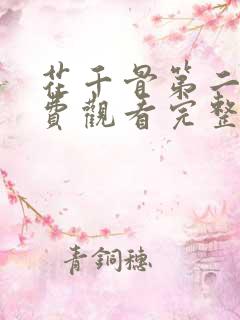 花千骨第二
費觀看完整
青銅穗